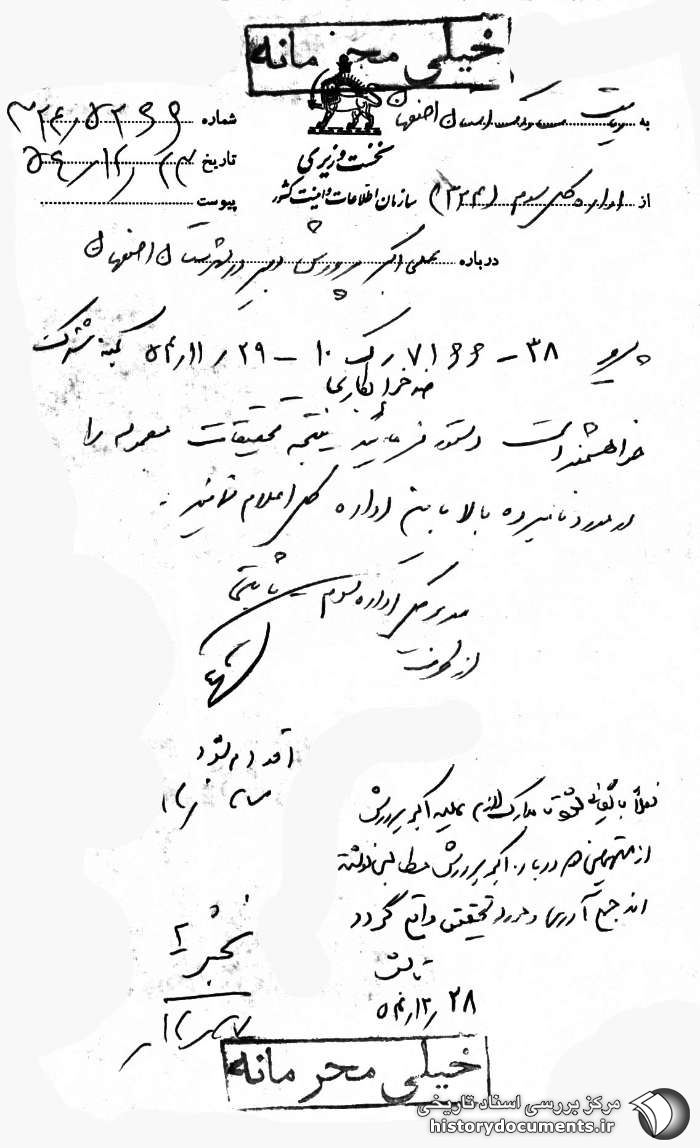 خیلی محرمانه
به ریاست ساواک استان اصفهان
شماره ۳۲۴/۵۲۶۶
نخست وزیری
تاریخ ۵۴/۱۲/۲۳
از اداره کل سوم (۳۲۴)
سازمان اطلاعات و امنیت کشور
پیوست
درباره علی اکبر پرورش دبیر دبیرستان اصفهان
پیرو ۷۱۶۶-۳۸ رک ۱۰ - ۵۴/۱۱/۲۹ کمیته مشترک
ضد خرابکاری
خواهشمند است دستور فرمائید نتیجه تحقیقات معموله را
در مورد نامبرده بالا باین اداره کل اعلام نمایند.
مدیر کل اداره سوم - ثابتی
از طرف
اقدام شود
اکبر پرورش
از متهمین هم درباره اکبر پرورش مطالبی نوشته
اند جمع آوری و مورد تحقیق واقع گردد
۵۴/۱۲/۲۸
خیلی محرمانه
مرکز بررسی اسناد تاریخی
historydocuments.ir